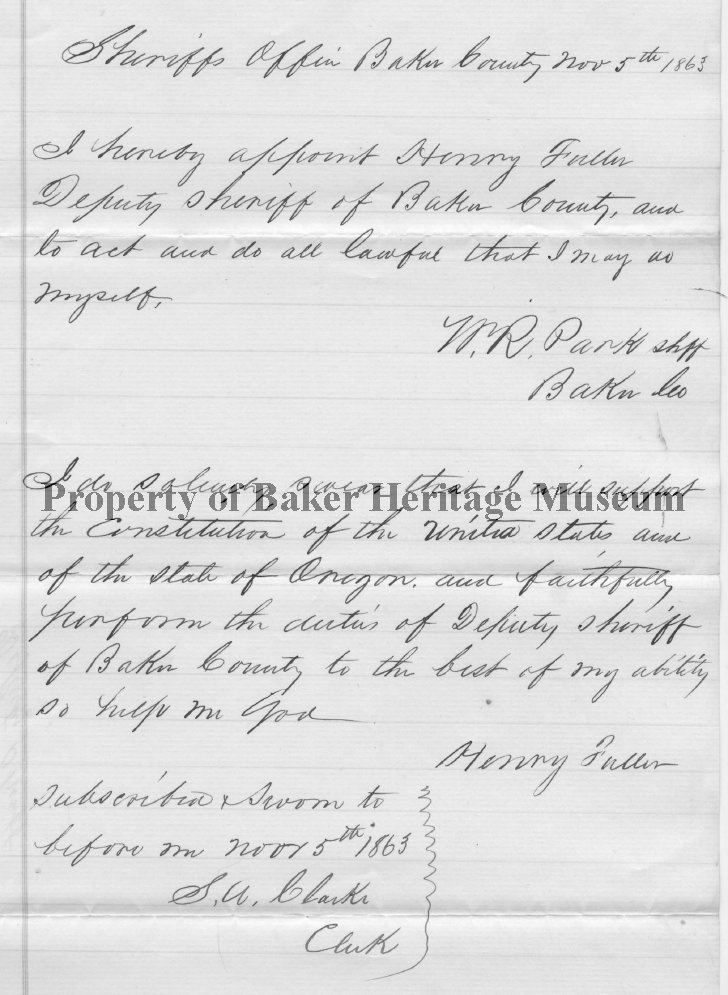 Sheriffs Office Baker County Nov 5th 1863
I hereby appoint Henry Fuller
Deputy sheriff of Baker County, and
to act and do all lawful that I may do
myself,
W. R. Park shff
Baker Co
I do solemnly swear that I will support
Property of Baker Heritage Museum
the Constitution of the United States and
of the state of Oregon. and faithfully
perform the duties of Deputy sheriff
of Baker County to the best of my ability
so help me God
Henry Fuller
Subscribed & Sworn to
before me Novr 5th 1863
S. A. Clarke
Clerk